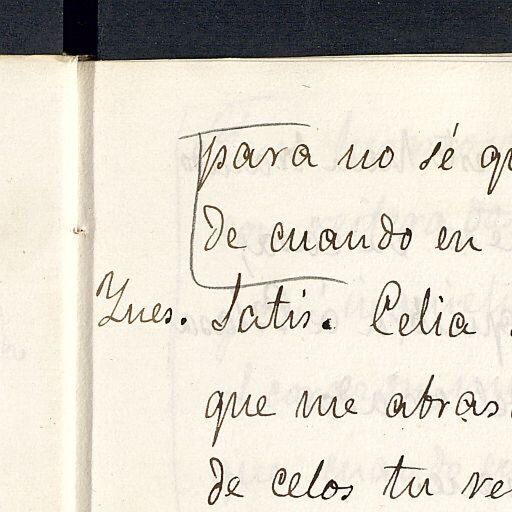 para no sé qu
de cuando en
Ynes. Satis. Celia
que me abras
de celos tu ve